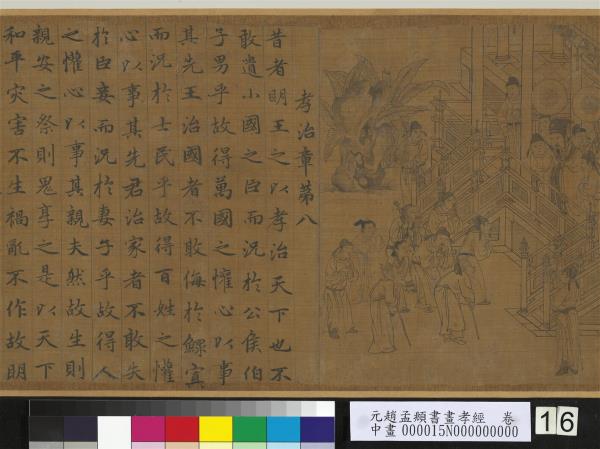 孝治章第八
昔者明王之以孝治天下也不
敢遺小國之臣而況於公侯伯
子男乎故得萬國之懽心以事
其先王治國者不敢侮於鰥寡
而況於士民乎故得百姓之懽
心以事其先君治家者不敢失
於臣妾而況於妻子乎故得人
之懽心以事其親夫然故生則
親安之祭則鬼享之是以天下
和平灾害不生禍亂不作故明
元趙孟頫書畫孝經 卷
中畫 000015N000000000
16